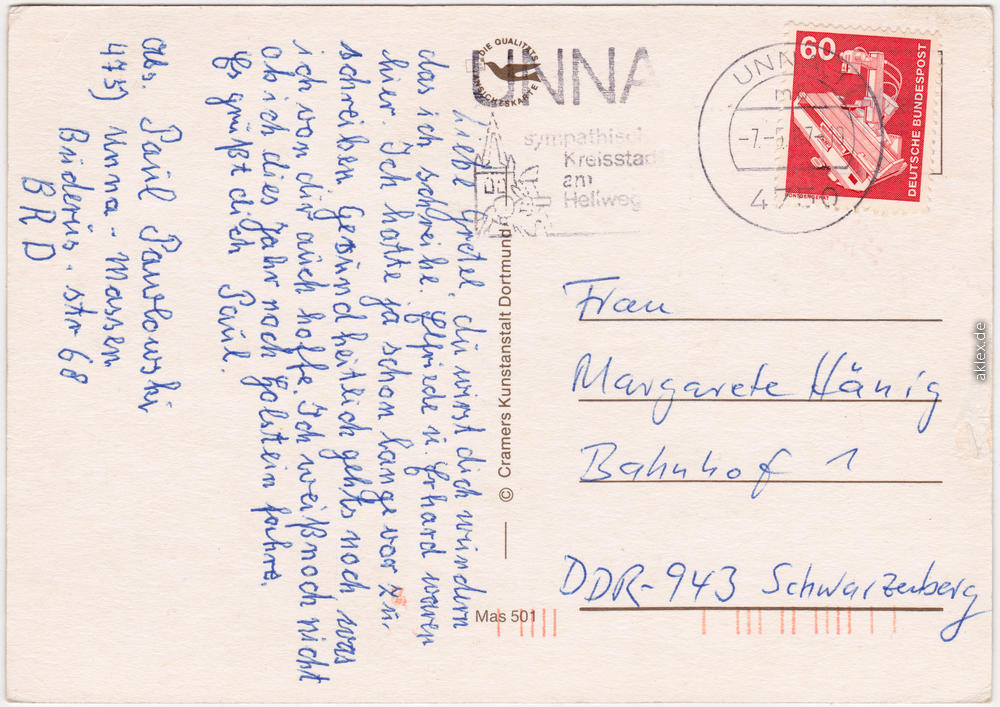 Liebe Gretel, du wirst dich wundern
das ich schreibe. Elfriede u. Erhard waren
hier. Ich hatte ja schon lange vor zu
schreiben. Gesundheitlich gehts noch, was
ich von dir auch hoffe. Ich weiß noch nicht
ob ich dies Jahr noch Holstein fahre.
Es grüßt dich Paul.
Abs. Paul Pawlowski
475) Unna-Massen
Büderis. str 68
BRD
DIE QUALITÄTS
ANSICHTSKARTE
© Cramers Kunstanstalt Dortmund
Mas 501
UNNA
sympathisch
Kreisstadt
am
Hellweg
UNNA
4750
60
DEUTSCHE BUNDESPOST
Frau
Margarete Hänig
Bahnhof 1
DDR-943 Schwarzenberg
aklex.de